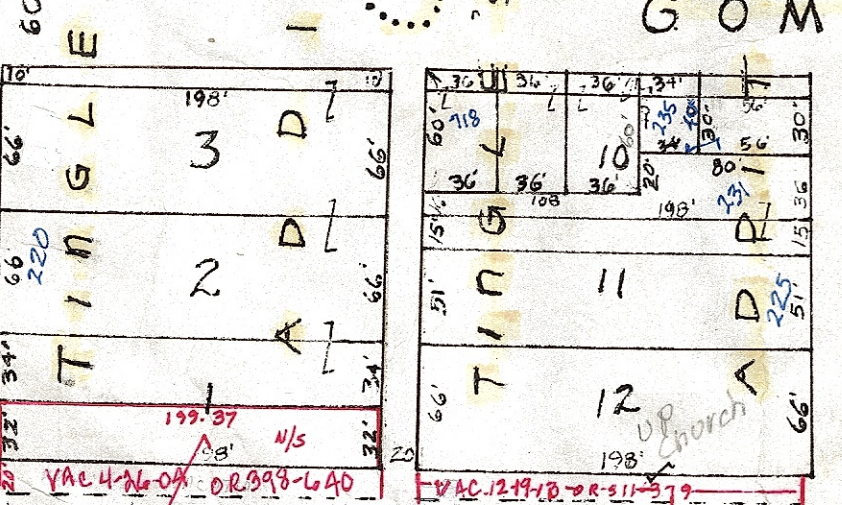 60
G O M
TINGLE
ADDI
10'
10'
198'
3
66'
66'
220
66'
2
66'
34'
34'
1
199.37
32'
98'
N/S
32'
20'
VAC 4-26-04 OR 398-640
20
TINGL
ADDI
36'
36'
36'
34'
56'
60'
718
60'
10
235
30'
30'
34'
56'
36'
36'
36'
20'
80'
231
108
198'
15½
15
36
11
51'
225
51'
12
66'
66'
UP
Church
198'
VAC. 12-19-13-OR-511-379